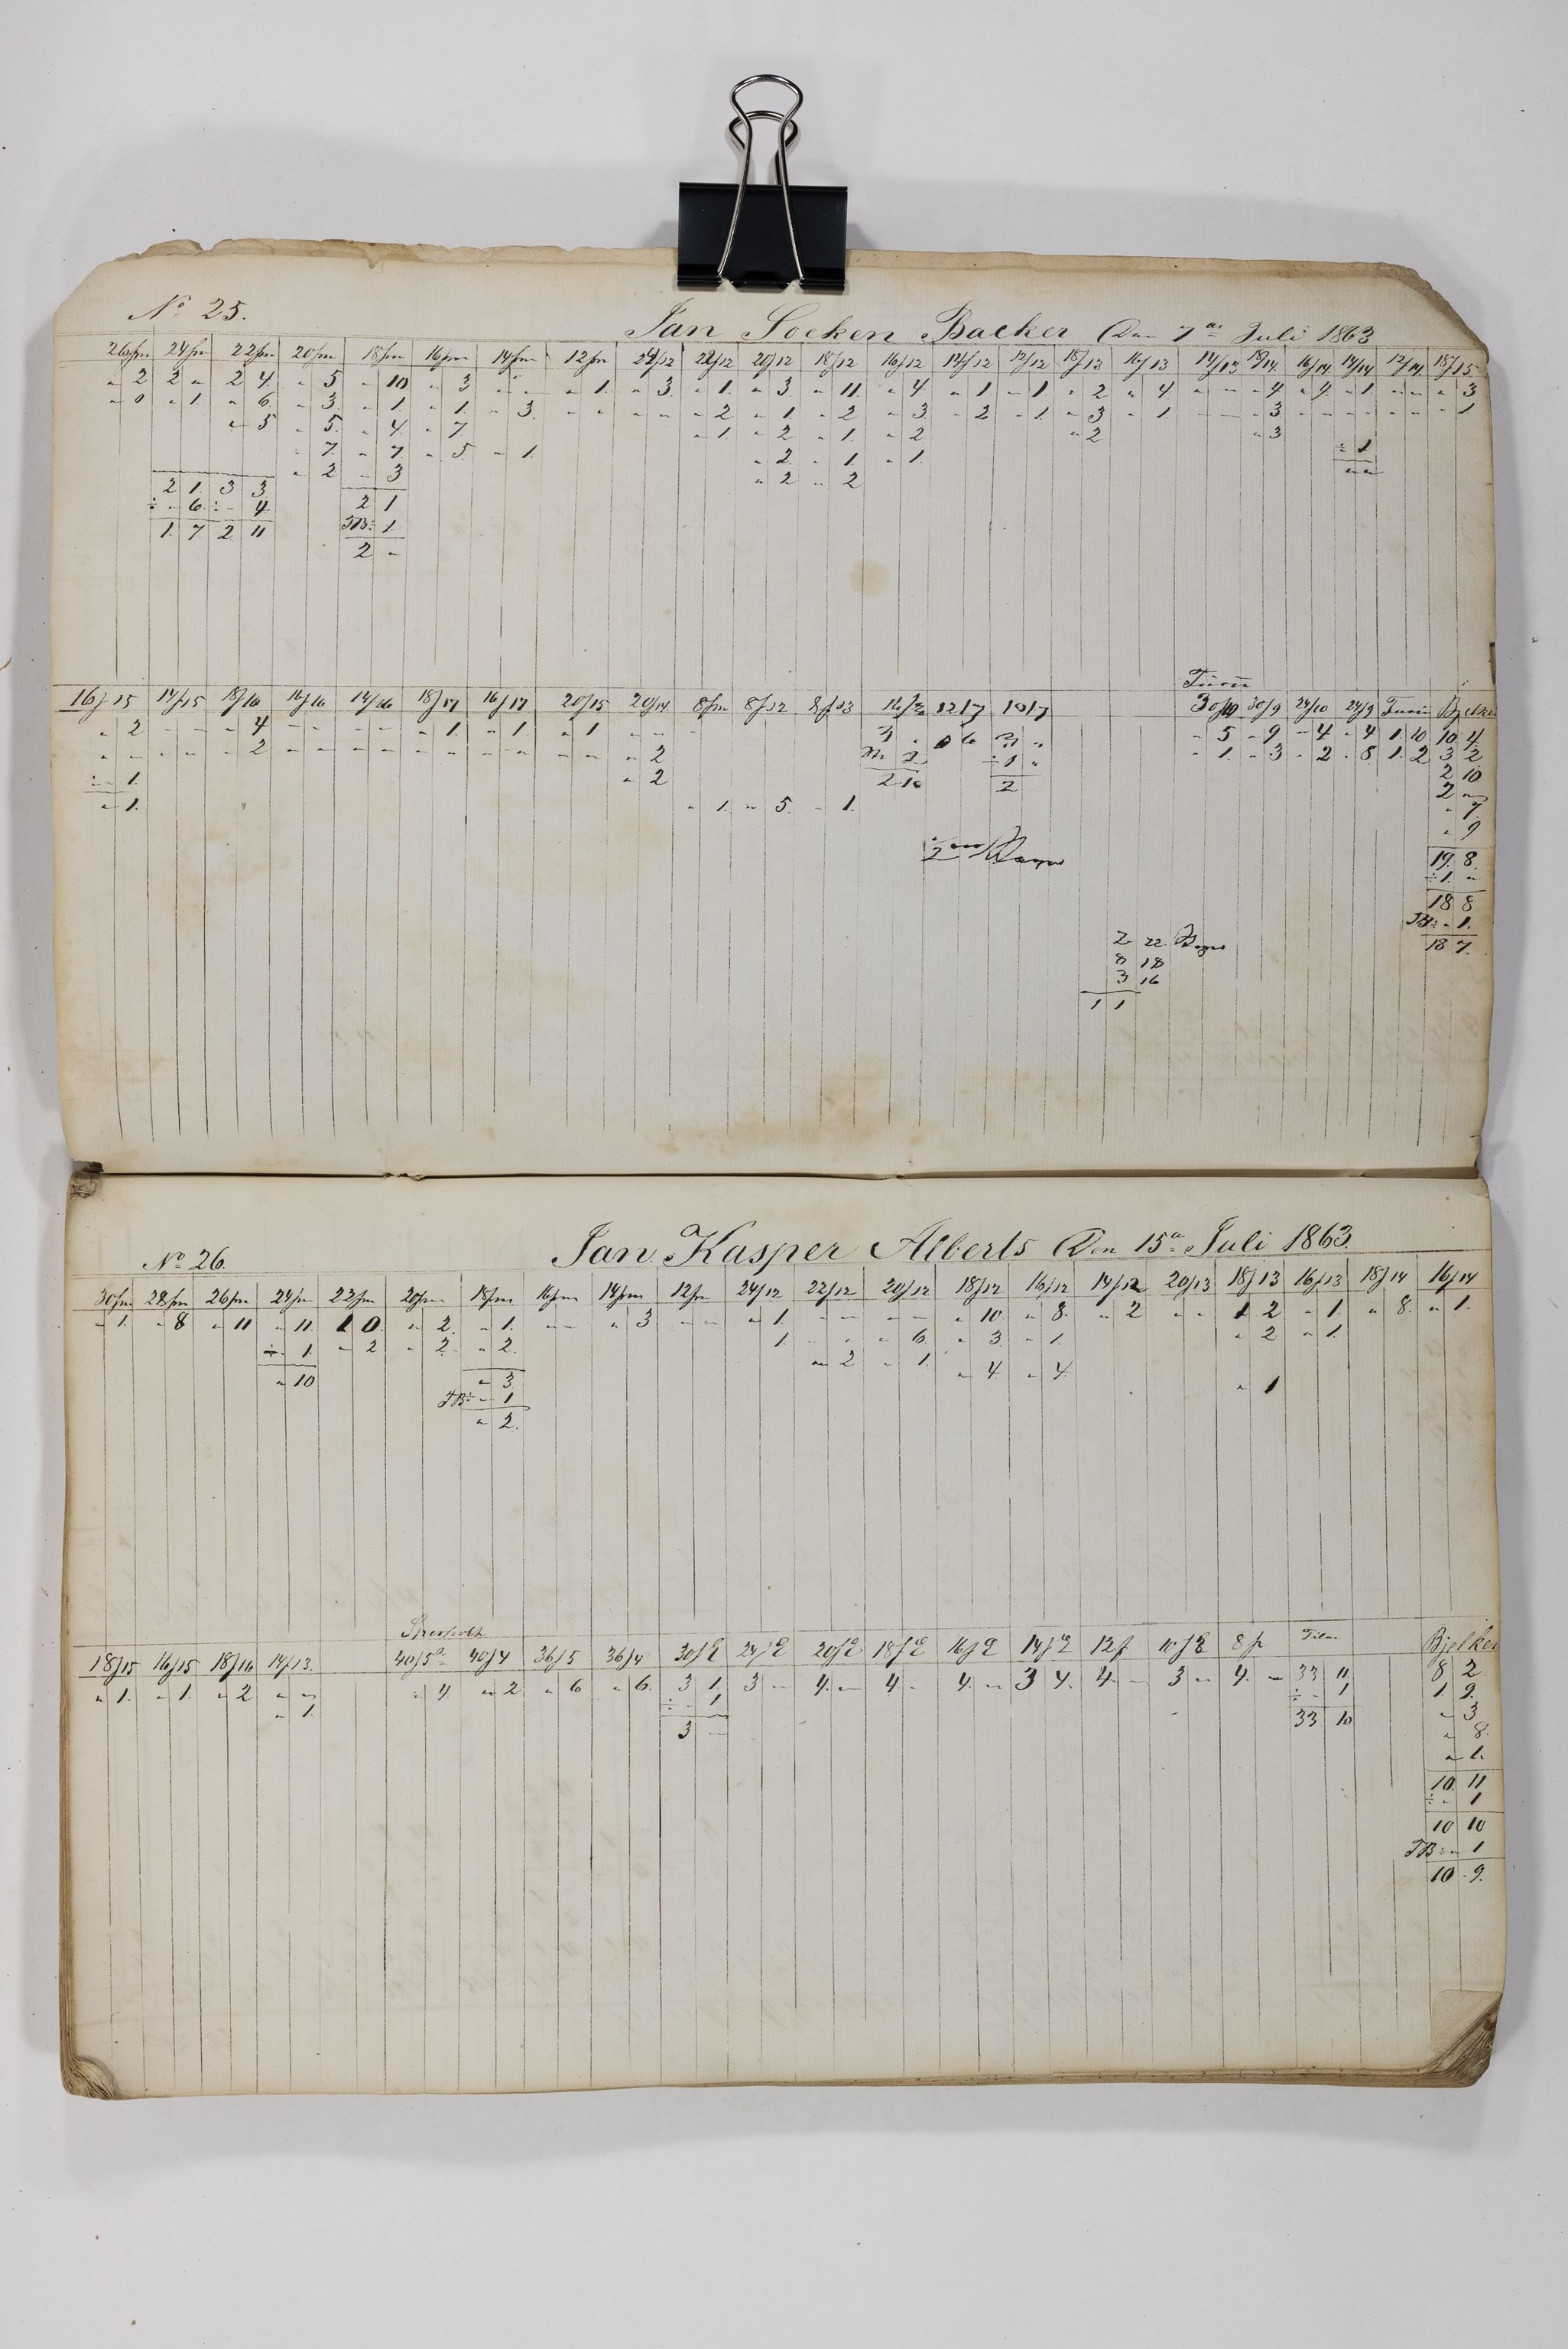 No 25. Jan Socken Backer Den 7de Juli 1863
26/m 24/m 22/m 20/m 18/m 16/m 14/m 12/m 24/12 22/12 20/12 18/12 16/12 14/12 12/12 18/13 16/13 14/13 18/14 16/14 14/14 12/14 18/15
" 2 2 " 2 4. " 5 " 10 " 3 " " " 1. " 3. " 1. " 3. " 11. " 4 " 1 " 1 " 2 " 4 " " " 4 " 4. " 1. " " " 3
" 0 " 1. " 6 " 3. " 1. " 1. " 3. " " " " " 2 " 1. " 2 " 3. " 2 " 1. " 3 " 1 " " " 3 " " " " " " " 1
" 5 " 5. " 4. " 7 " 1. " 2 " 1. " 2 " 2 " 3
" 7. " 7. " 5. " 1. " 2. " 1 " 1. ÷ 1
" 2 " 3 " 2 " 2 " "
2 1. 3 3. 2 1
÷ " 6. ÷ " 4 TB: 1.
1. 7 2 11 2 "
Turin
16/15 14/15 18/16 16/16 14/16 18/17 16/17 20/15 20/14 8/m 8/12 8/13 1217 1017 30/10 30/9 24/10 24/9 Turin Bjelker
" 2 " " " 4 " " " " " 1. " 1 " 1 " " " 5 " 9 " 4 " 4 1. 10 10 4.
" " " " " 2 " " " " " " " " " " " 2 " 1. " 3 " 2 " 8 1. 2 3 2
÷ " 1. " 2 2 10 2 2 10
" 1. " 1. " 5. " 1. 2 "
" 7.
" 9
19. 8.
÷ 1. "
18 8
2 22
TB: " 1.
8 18 18 7.
3 16
1 1
No 26. Jan Kasper Alberts Den 15de Juli 1863.
30/m 28/m 26/m 24/m 22/m 20/m 18/m 16/m 14/m 12/m 24/12 22/12 20/12 18/12 16/12 14/12 20/13 18/13 16/13 18/14 16/14
" 1. " 8 " 11 " 11. 1 0. " 2. " 1. " " " 3 " " " 1. " " " " " 10 " 8. " 2 " " 1 2 " 1. " 8. " 1.
÷ 1. " 2 " 2. " 2. 1. " " " 6. " 3. " 1. " 2 " 1
" 10 " 3. " 2 " 1. " 4 " 4. " 1
TB÷ " 1
" 2.
18/15 16/15 18/16 14/13. 40/5 40/4 36/5 36/4 30/2 24/2 20/2 18/2 16/2 14/2 12/ 10/2 8/ Bjelker
" 1. " 1. " 2 " " " 4. " 2 " 6 " 6. 3 1. 3 " 4. " 4. " 4. " 3 4. 4. " 3 " 4. " 33 11. 8 2.
" 1. ÷ " 1 ÷ " 1 1. 9.
3 " 33 10 " 3
" 8.
" 1.
10. 11
÷ " 1
10 10
TB: " 1
10 " 9.